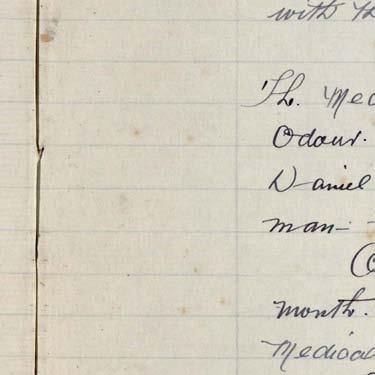 with th
Th. Med
Odour.
Daniel
man -
(o
month.
Medical